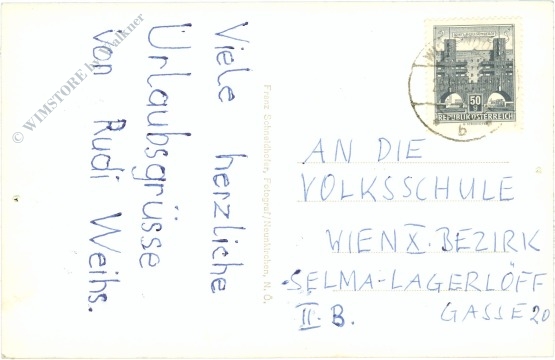 Viele herzliche
Urlaubsgrüsse
von Rudi Weihs.
© WIMSTORE by Falkner
Franz Schneidhofer, Fotograf/Neunkirchen, N. Ö.
50
REPUBLIK ÖSTERREICH
b
AN DIE
VOLKSSCHULE
WIEN X. BEZIRK
SELMA-LAGERLÖFF
GASSE 20
II. B.